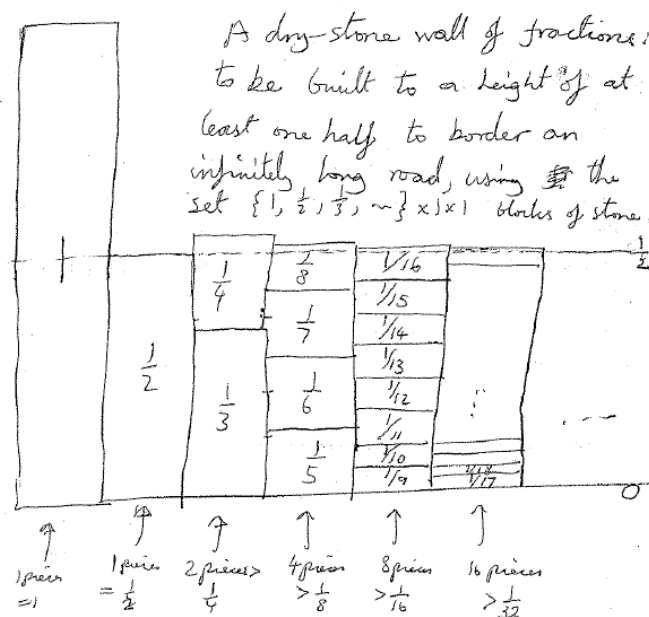 A dry-stone wall of fractions:
to be built to a height of at
least one half to border an
infinitely long road, using the
set {1, 1/2, 1/3, ~} x1x1 blocks of stone
1/2
1
1/4
1/8
1/16
1/15
1/7
1/14
1/2
1/13
1/3
1/6
1/12
1/11
1/5
1/10
1/9
1/18
1/17
O
1 pieces 1 pieces 2 pieces > 4 pieces 8 pieces 16 pieces
=1 = 1/2 1/4 > 1/8 > 1/16 > 1/32